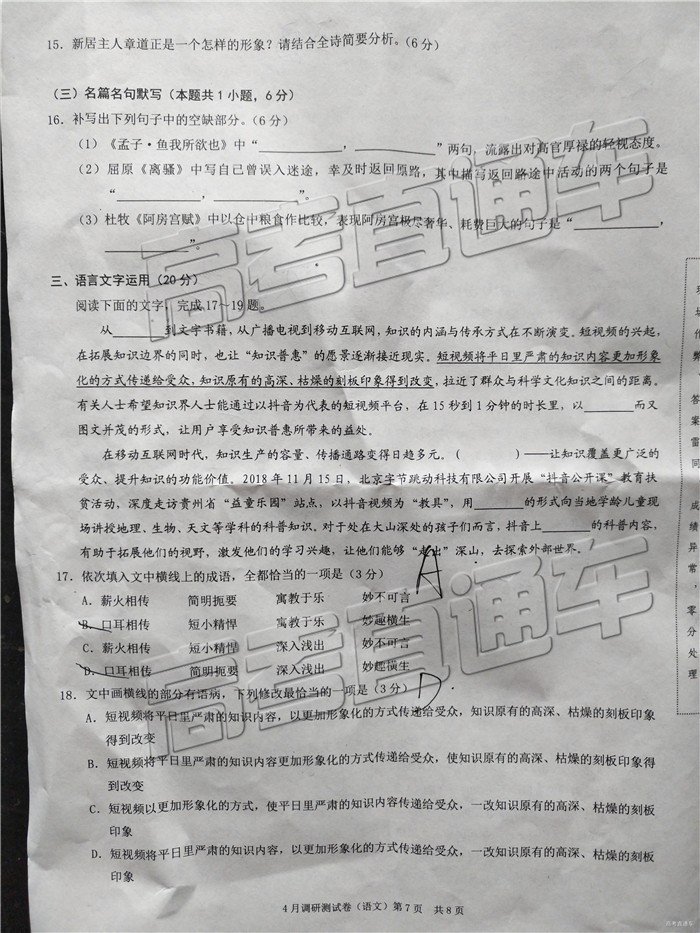 15. 新居主人章道正是一个怎样的形象?请结合全诗简要分析。(6分)
(三)名篇名句默写(本题共1小题,6分)
16. 补写出下列句子中的空缺部分。(6分)
(1)《孟子·鱼我所欲也》中“____________,____________”两句,流露出对高官厚禄的轻视态度。
(2)屈原《离骚》中写自己曾误入迷途,幸及时返回原路,其中描写返回路途中活动的两个句子是
“____________,____________”。
(3)杜牧《阿房宫赋》中以仓中粮食作比较,表现阿房宫极尽奢华、耗费巨大的句子是“____________,
____________”。
三、语言文字运用(20分)
阅读下面的文字,完成17~19题。
从________到文字书籍,从广播电视到移动互联网,知识的内涵与传承方式在不断演变。短视频的兴起,
在拓展知识边界的同时,也让“知识普惠”的愿景逐渐接近现实。短视频将平日里严肃的知识内容更加形象
化的方式传递给受众,知识原有的高深、枯燥的刻板印象得到改变,拉近了群众与科学文化知识之间的距离。
有关人士希望知识界人士能通过以抖音为代表的短视频平台,在15秒到1分钟的时长里,以________而又
图文并茂的形式,让用户享受知识普惠所带来的益处。
在移动互联网时代,知识生产的容量、传播通路变得日趋多元。( )——让知识覆盖更广泛的
受众、提升知识的功能价值。2018年11月15日,北京字节跳动科技有限公司开展“抖音公开课”教育扶
贫活动,深度走访贵州省“益童乐园”站点,以抖音视频为“教具”,用________的形式向当地学龄儿童现
场讲授地理、生物、天文等学科的科普知识。对于处在大山深处的孩子们而言,抖音上________的科普内容,
有助于拓展他们的视野,激发他们的学习兴趣,让他们能够“走出”深山,去探索外部世界。
17. 依次填入文中横线上的成语,全都恰当的一项是(3分) A
A. 薪火相传 简明扼要 寓教于乐 妙不可言
B. 口耳相传 短小精悍 寓教于乐 妙趣横生
C. 薪火相传 短小精悍 深入浅出 妙不可言
D. 口耳相传 简明扼要 深入浅出 妙趣横生
18. 文中画横线的部分有语病,下列修改最恰当的一项是(3分) D
A. 短视频将平日里严肃的知识内容,以更加形象化的方式传递给受众,知识原有的高深、枯燥的刻板印象
得到改变
B. 短视频将平日里严肃的知识内容更加形象化的方式传递给受众,使知识原有的高深、枯燥的刻板印象得
到改变
C. 短视频以更加形象化的方式,使平日里严肃的知识内容传递给受众,一改知识原有的高深、枯燥的刻板
印象
D. 短视频将平日里严肃的知识内容,以更加形象化的方式传递给受众,一改知识原有的高深、枯燥的刻板
印象
4月调研测试卷(语文)第7页 共8页
作弊
答案雷同
成绩异常
零分处理
高考直通车
高考直通车